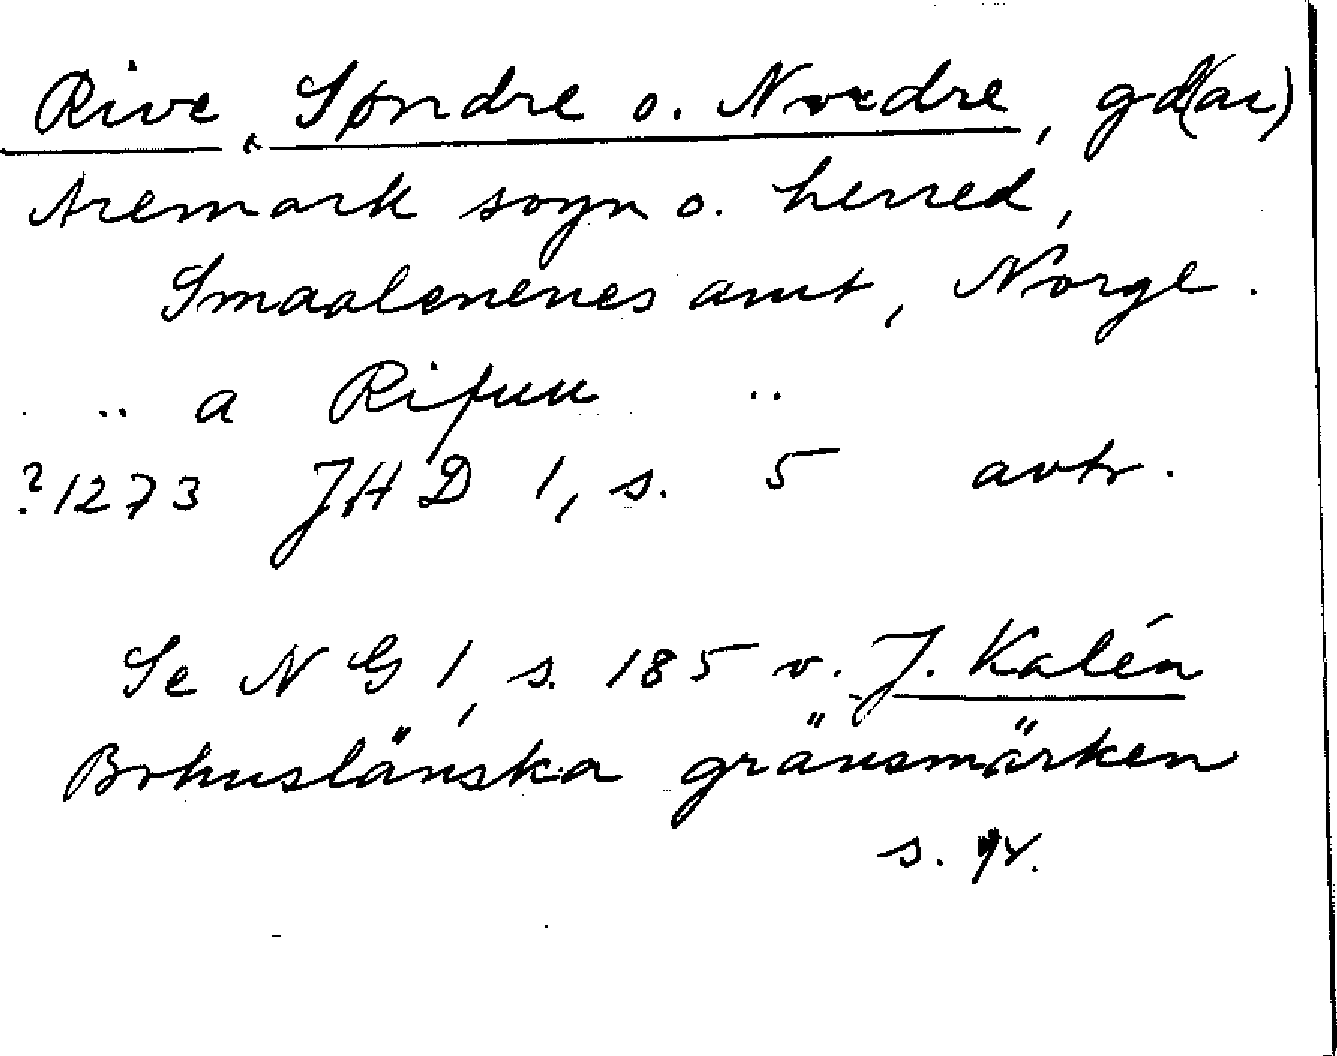 Rive, Søndre o. Nordre, gd(ar)
Aremark sogn o. herred,
Smaalenenes amt, Norge.
.. a Rifuu ..
?1273 JHD 1, s. 5 avtr.
Se NG 1, s. 185 v. J. Kalén
Bohuslänska gränsmärken
s.